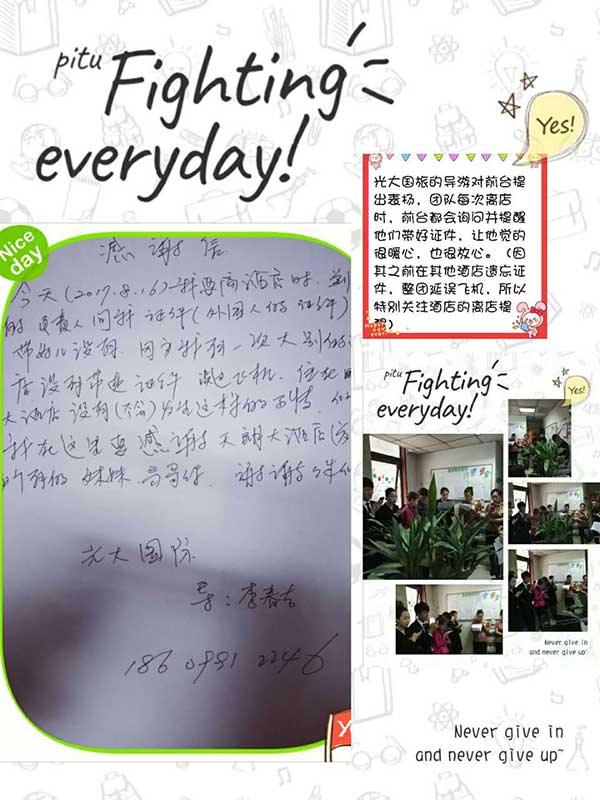 pitu Fighting
everyday!
Yes!
Nice
day
感谢信
今天(2017.8.16)我要离酒店时,前
的负责人问我证件(外国人的证件)
带好儿没有.因为我有一次大别的
店没有带走证件 误过飞机.
大酒店没有(不会)发生这样的不特.
我在这里要感谢天朗大酒店
所有的妹妹哥哥们. 谢谢
光大国际
导:李春吉
光大国旅的导游对前台提
出表扬,团队每次离店
时,前台都会询问并提醒
他们带好证件,让他觉的
很暖心,也很放心。(因
其之前在其他酒店遗忘证
件,整团延误飞机,所以
特别关注酒店的离店提
pitu Fighting
everyday!
Yes!
Never give in
and never give up~
Never give in
and never give up~